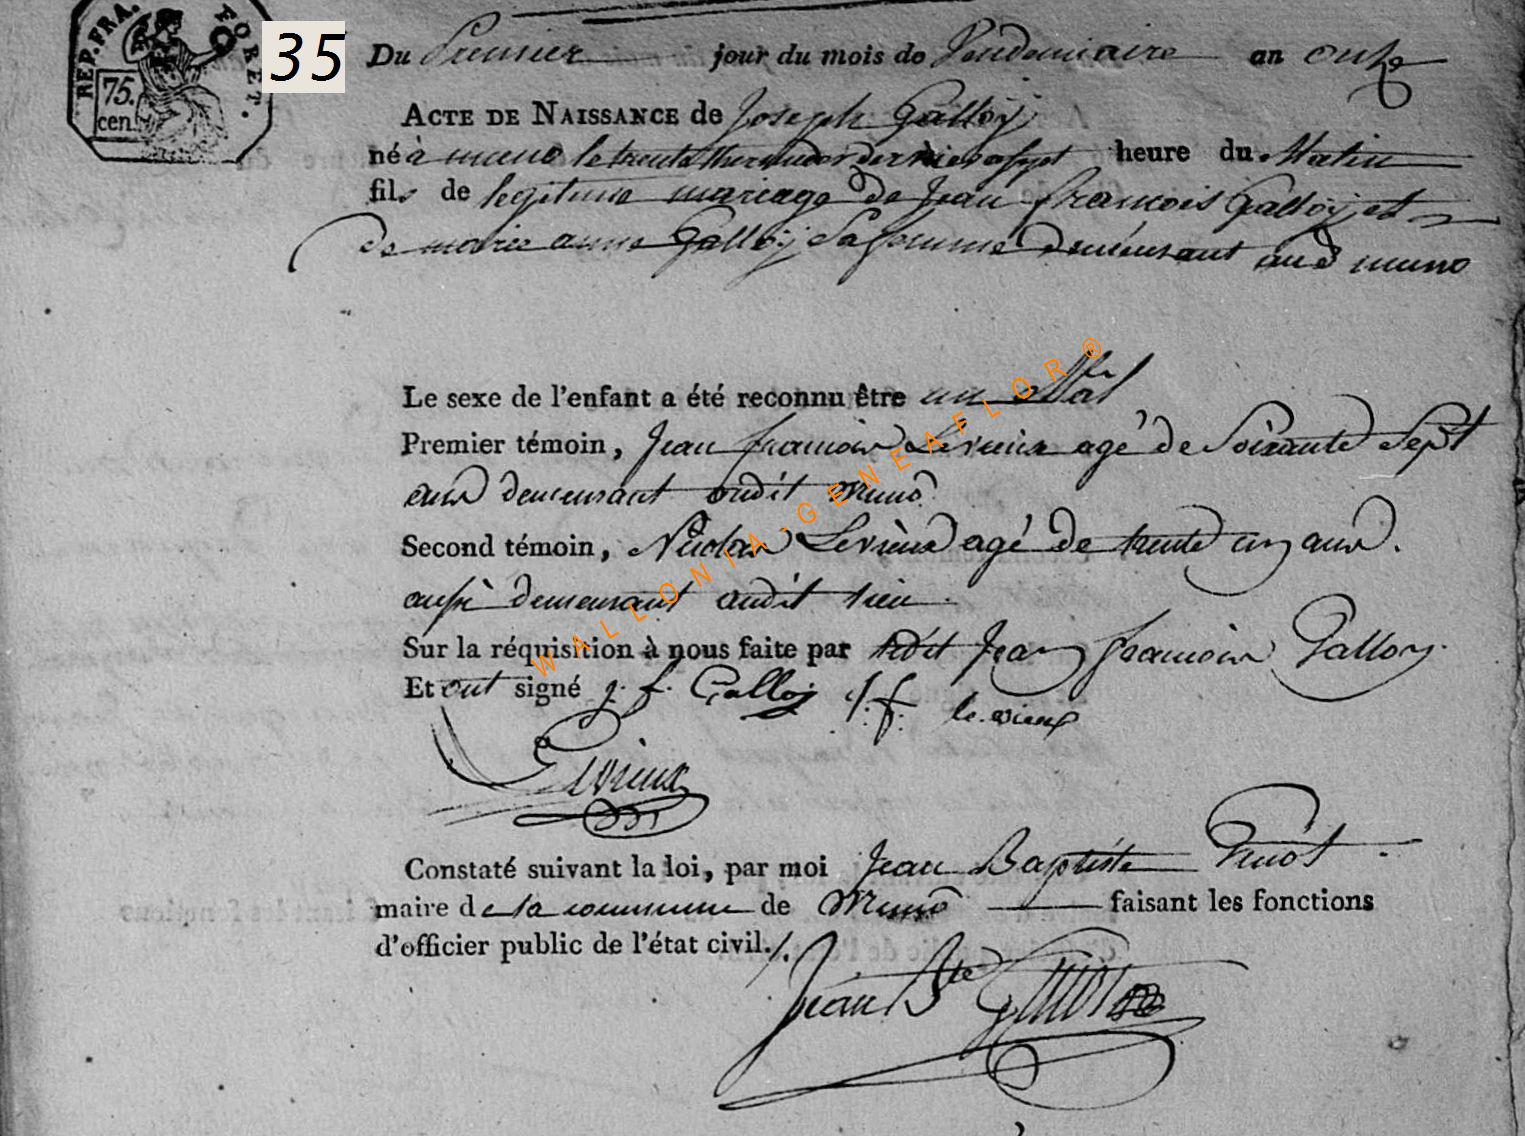 REP. FRA. FORET.
75. cen.
35
Du Premier jour du mois de Vendemiaire an onze
ACTE DE NAISSANCE de Joseph Galloÿ
né à muno le trente thermidor dernier a sept heure du Matin
fils de legitime mariage de Jean françois Galloÿ et
de marie anne Galloÿ Sa femme demeurant aud muno
Le sexe de l'enfant a été reconnu être un Mâl
Premier témoin, Jean françois Levieux agé de Soixante Sept
ans demeurant audit Muno
Second témoin, Nicolas Levieux agé de trente ans.
aussi demeurant audit lieu.
Sur la réquisition à nous faite par ledit Jean françois Galloy.
Et ont signé j. f. Galloy j. f. le vieux
Levieux
Constaté suivant la loi, par moi Jean Baptiste
maire de la commune de Muno faisant les fonctions
d'officier public de l'état civil./.
Jean Bte
WALLONIA-GENEAFLOR®